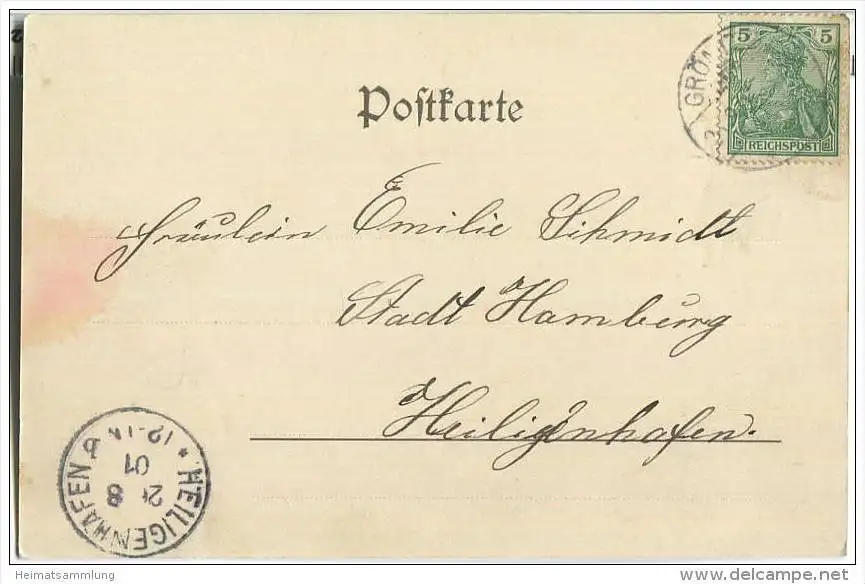 5 5
REICHSPOST
GRÖ
Postkarte
Fräulein Emilie Schmidt
Stadt Hamburg
Heiligenhafen.
HEILIGENHAFEN
8
01
Heimatsammlung
www.delcampe.net